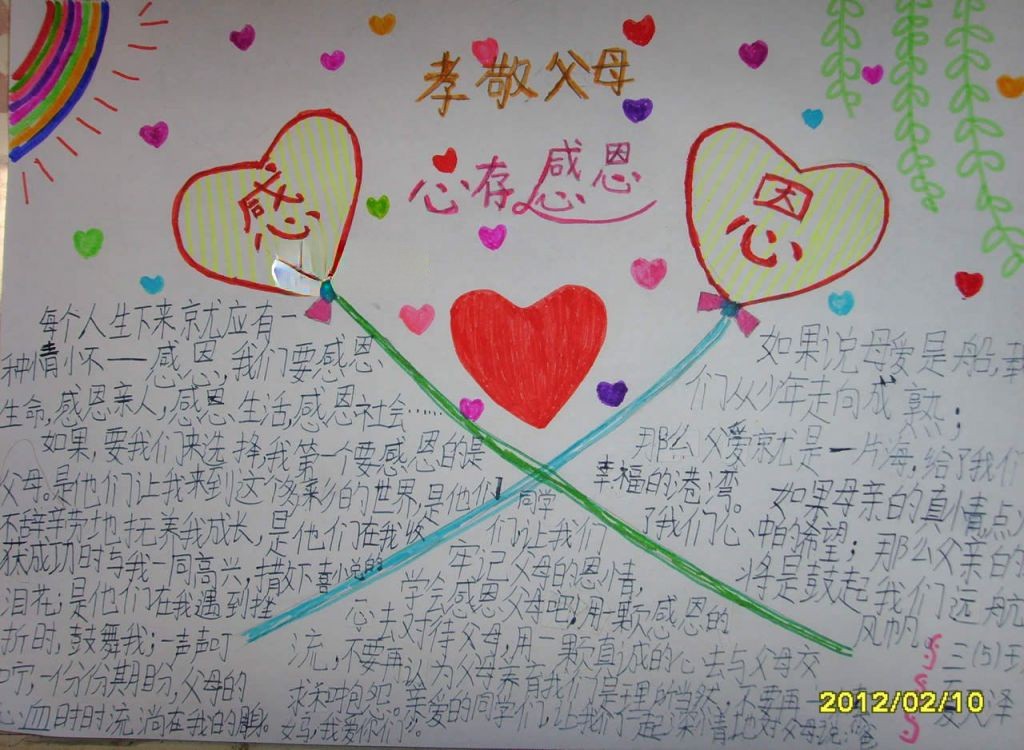 孝敬父母
心存感恩
感
恩
每个人生下来就应有一
种情怀——感恩,我们要感恩
生命,感恩亲人,感恩生活,感恩社会……
如果,要我们来选择我第一个要感恩的是
父母。是他们让我来到这个多彩的世界,是他们
不辞辛劳地抚养我成长,是他们在我收
获成功时与我一同高兴,措下喜悦的
泪花;是他们在我遇到挫
折时,鼓舞我;一声声叮
咛,一份份期盼,父母的
心血时时流淌在我的
如果说母爱是船,载
们从少年走向成熟;
那么父爱就是一片海,给了我们
幸福的港湾。
如果母亲的真情点
了我们心中的希望;那么父亲的
将是鼓起我们远航
风帆。
同学
们让我们
牢记父母的恩情,
学会感恩父母吧!用一颗感恩的
心去对待父母,用一颗真诚的心去与父母交
流,不要再认为父母养育我们是理所当然,不要再一
求和抱怨。亲爱的同学们,让我们一起深情地对父母说:"爸
妈,我爱你们"。
三(5)班
2012/02/10